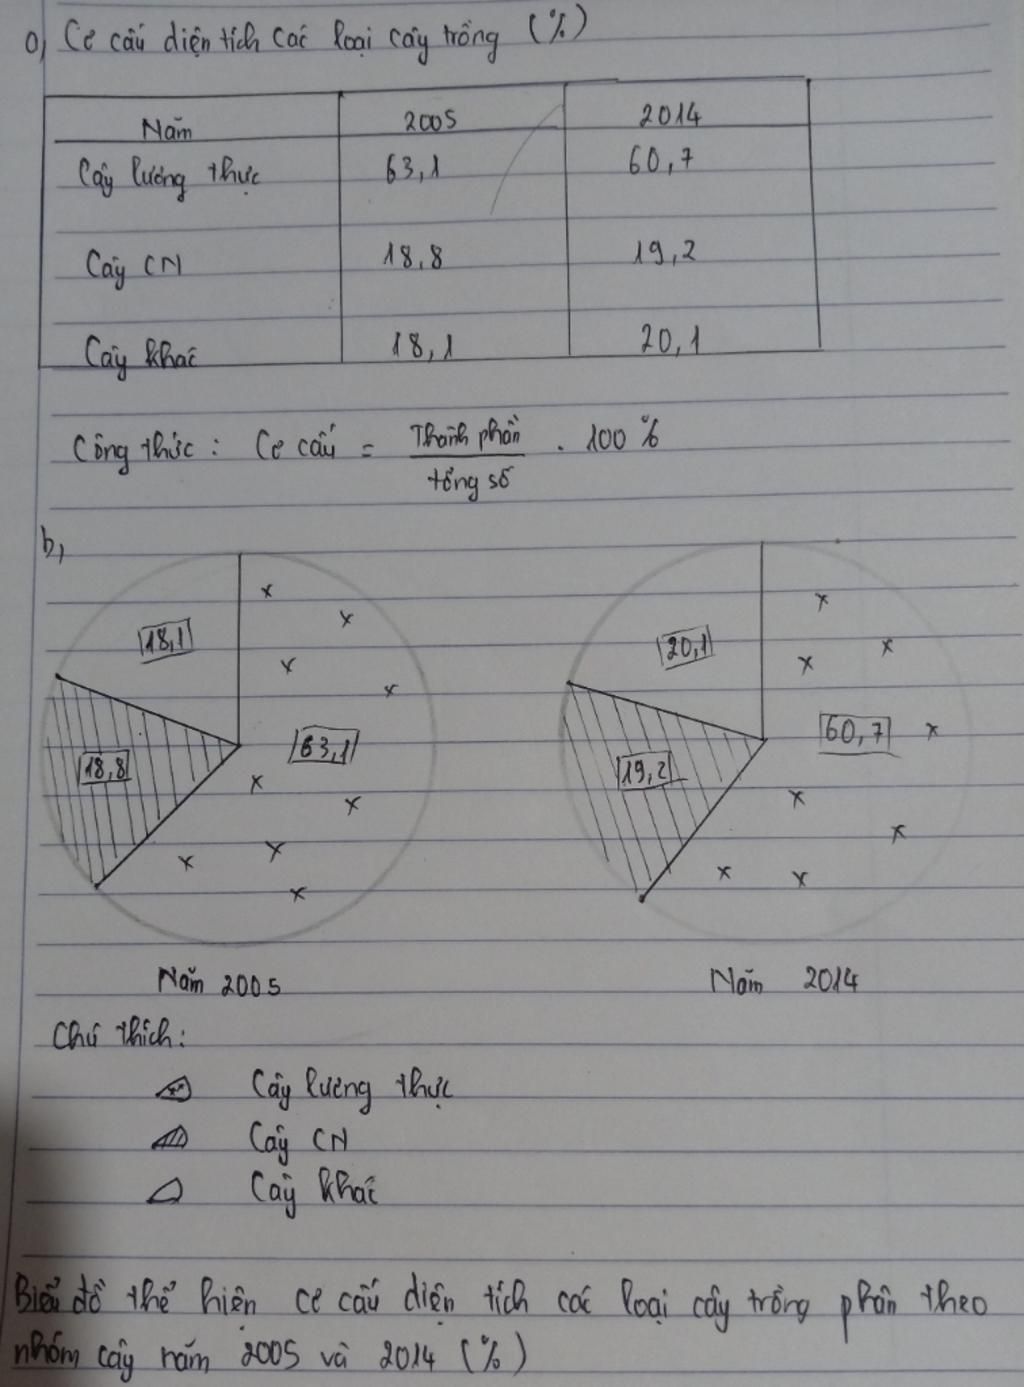 a, Cơ cấu diện tích các loại cây trồng (%)
Năm 2005 2014
Cây lương thực 63,1 60,7
Cây CN 18,8 19,2
Cây khác 18,1 20,1
Công thức : Cơ cấu = Thành phần / tổng số . 100 %
b,
18,1 20,1
63,1 60,7
18,8 19,2
Năm 2005 Năm 2014
Chú thích :
Cây lương thực
Cây CN
Cây khác
Biểu đồ thể hiện cơ cấu diện tích các loại cây trồng phân theo
nhóm cây năm 2005 và 2014 (%)